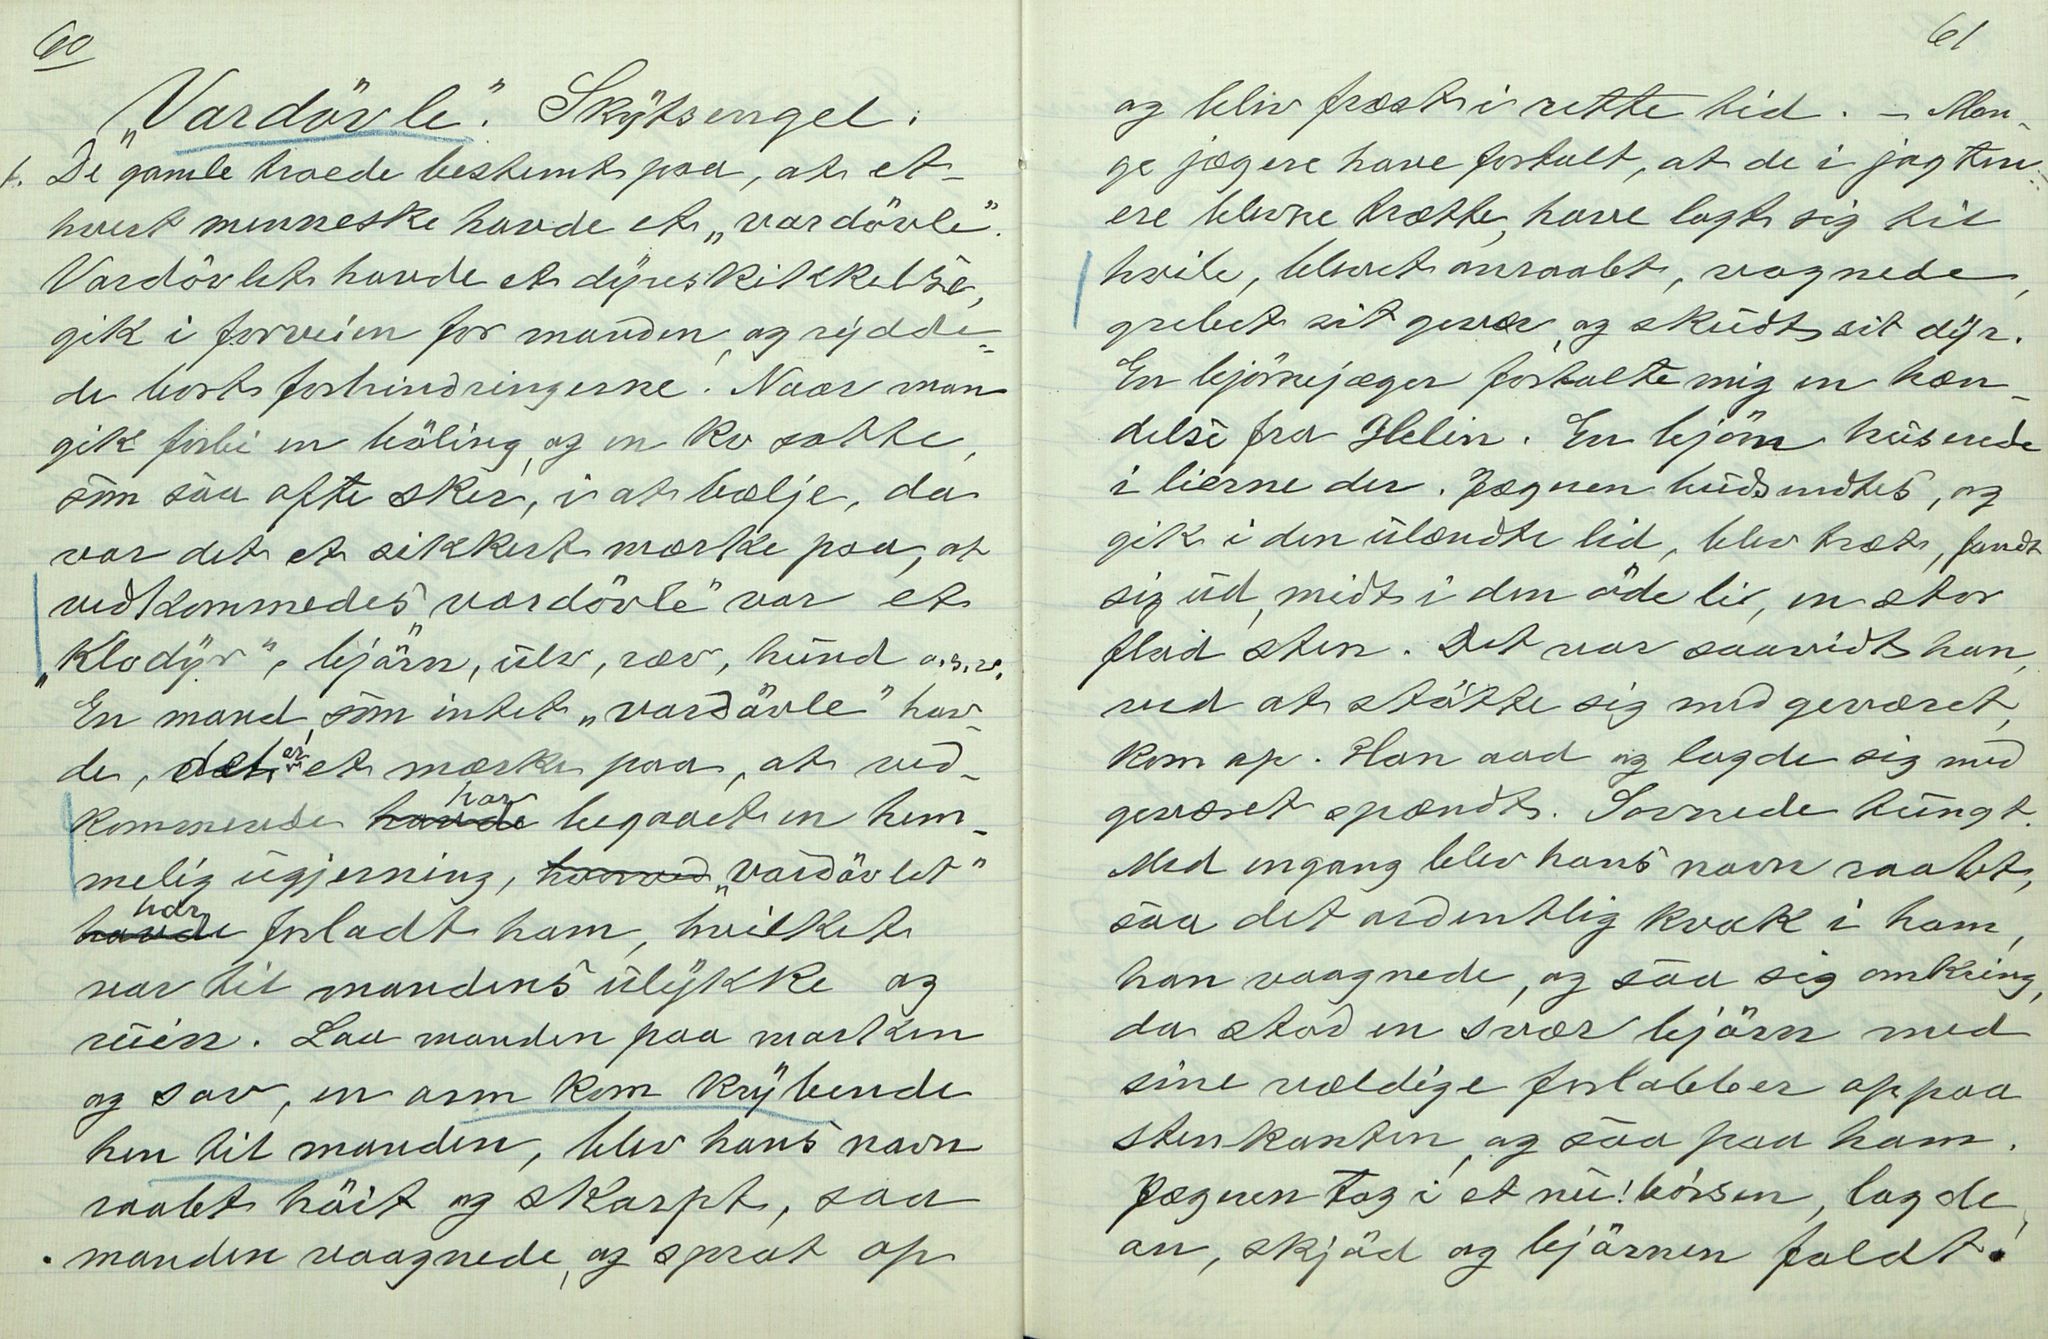 60
"Vardövle". Skytsengel.
1. De gamle troede bestemt paa, at et-
hvert menneske havde et "vardövle".
Vardövlet havde et dyreskikkelse,
gik i forveien for manden, og rydde-
de bort forhindringerne. Naar man
gik forbi en böling, og en ko satte,
som saa ofte sker, i at belje, da
var det et sikkert mærke paa, at
vedkommedes "vardövle" var et
"Klodyr", bjørn, ulv, ræv, hund o.s.v.
En mand, som intet "vardövle" hav-
de, det er et mærke paa, at ved-
kommende havde har begaaet en hem-
melig ugjerning, hvorved "vardövlet"
havde har forladt ham, hvilket
var til mandens ulykke og
ruin. Laa manden paa marken
og sov, en orm kom krybende
hen til manden, blev hans navn
raabt höit og skarpt, saa
manden vaagnede, og sprat op
61
og blev fræst i rette tid. - Man-
ge jægere have fortalt, at de i jagtin-
ere blevne trætte, have lagt sig til
hvile, blevet anraabt, vognede,
grebet sit gevær, og skudt sit dyr.
En bjørnejæger fortalte mig en hæn-
delse fra Helin. En björn huserede
i lierne der. Jægeren budsendtes, og
gik i den ulændte lid, blev træt, fandt
sig ud, midt i den öde li, en stor
flad sten. Det var saavidt han,
ved at stötte sig med geværet,
kom op. Han aad og lagde sig med
geværet spændt. Sovnede tungt.
Med engang blev hans navn raabt,
saa det ordentlig kvak i ham,
han vaagnede, og saa sig omkring,
da stod en svær björn med
sine vældige forlabber op paa
stenkanten, og saa paa ham.
Jægeren tog i et nu! börsen, lagde
an, skjöd og björnen faldt.